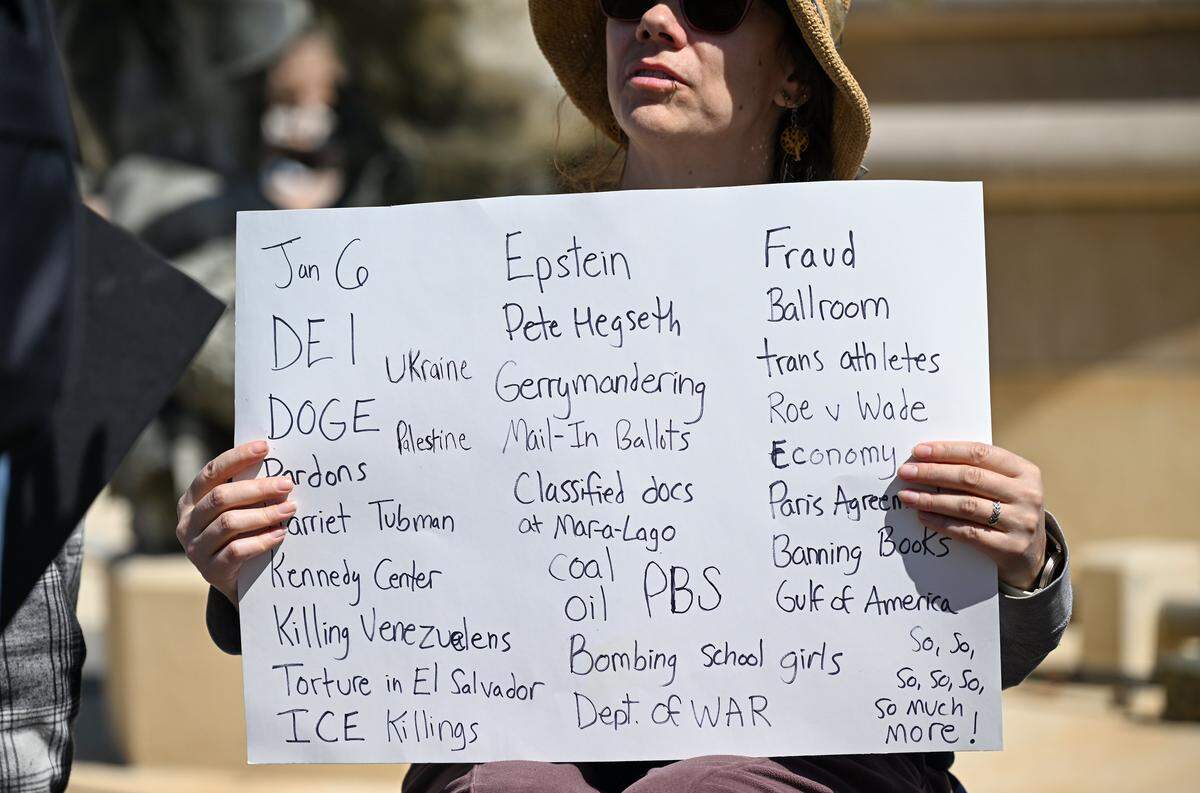 Jan 6
DEI
Ukraine
DOGE
Palestine
Pardons
arriet Tubman
Kennedy Center
Killing Venezuelens
Torture in El Salvador
ICE Killings
Epstein
Pete Hegseth
Gerrymandering
Mail-In Ballots
Classified docs
at Mar-a-Lago
coal
oil
PBS
Bombing school girls
Dept. of WAR
Fraud
Ballroom
trans athletes
Roe v Wade
Economy
Paris Agreem
Banning Books
Gulf of America
So, So,
So, So, So,
So much
more!